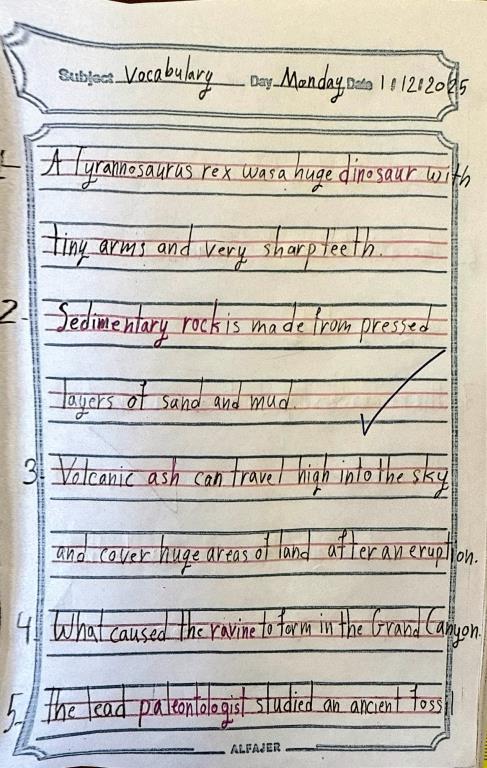 Subject Vocabulary Day Monday Date 1/12/2025
1- A Tyrannosaurus rex was a huge dinosaur with
tiny arms and very sharp teeth.
2- Sedimentary rock is made from pressed
layers of sand and mud.
3- Volcanic ash can travel high into the sky
and cover huge areas of land after an eruption.
4- What caused the ravine to form in the Grand Canyon.
5- The lead paleontologist studied an ancient foss
ALFAJER